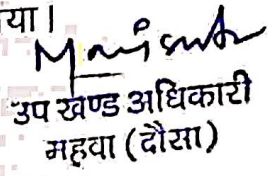 या।
उप खण्ड अधिकारी
महवा (दौसा)